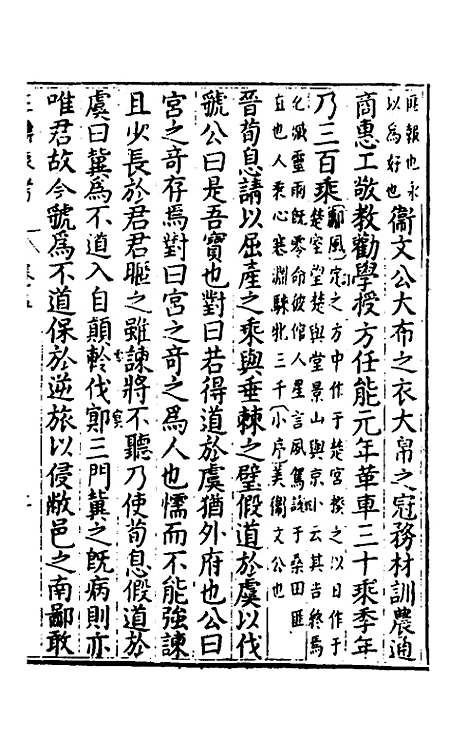 匪報也永
以為好也
衞文公大布之衣大帛之冠務材訓農通
商惠工敬教勸學授方任能元年革車三十乘季年
乃三百乘
鄘風定之方中作于楚宮揆之以日作于
楚室望楚與堂景山與京卜云其吉終焉
允臧靈雨旣零命彼倌人星言夙駕說于桑田匪
直也人秉心塞淵騋牝三千小序美衞文公也
晉荀息請以屈產之乘與垂棘之璧假道於虞以伐
虢公曰是吾寶也對曰若得道於虞猶外府也公曰
宮之奇存焉對曰宮之奇之為人也懦而不能強諫
且少長於君君暱之雖諫將不聽乃使荀息假道於
虞曰冀為不道入自顛軨伐鄍三門冀之旣病則亦
唯君故今虢為不道保於逆旅以侵敝邑之南鄙敢